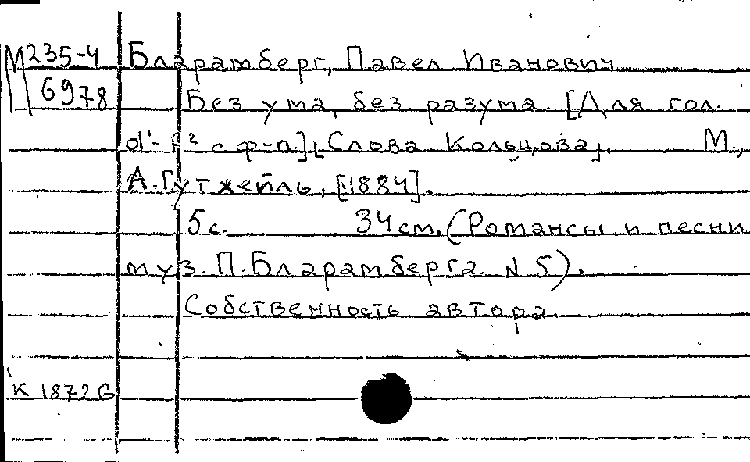 М235-4 Бларамберг, Павел Иванович
6978 Без ума, без разума. [Для гол.
d¹-f² с ф-п]. Слова Кольцова. М.,
А. Гутхейль, [1884].
5с. 34см. (Романсы и песни
муз. П. Бларамберга N 5).
Собственность автора
К 1872 G